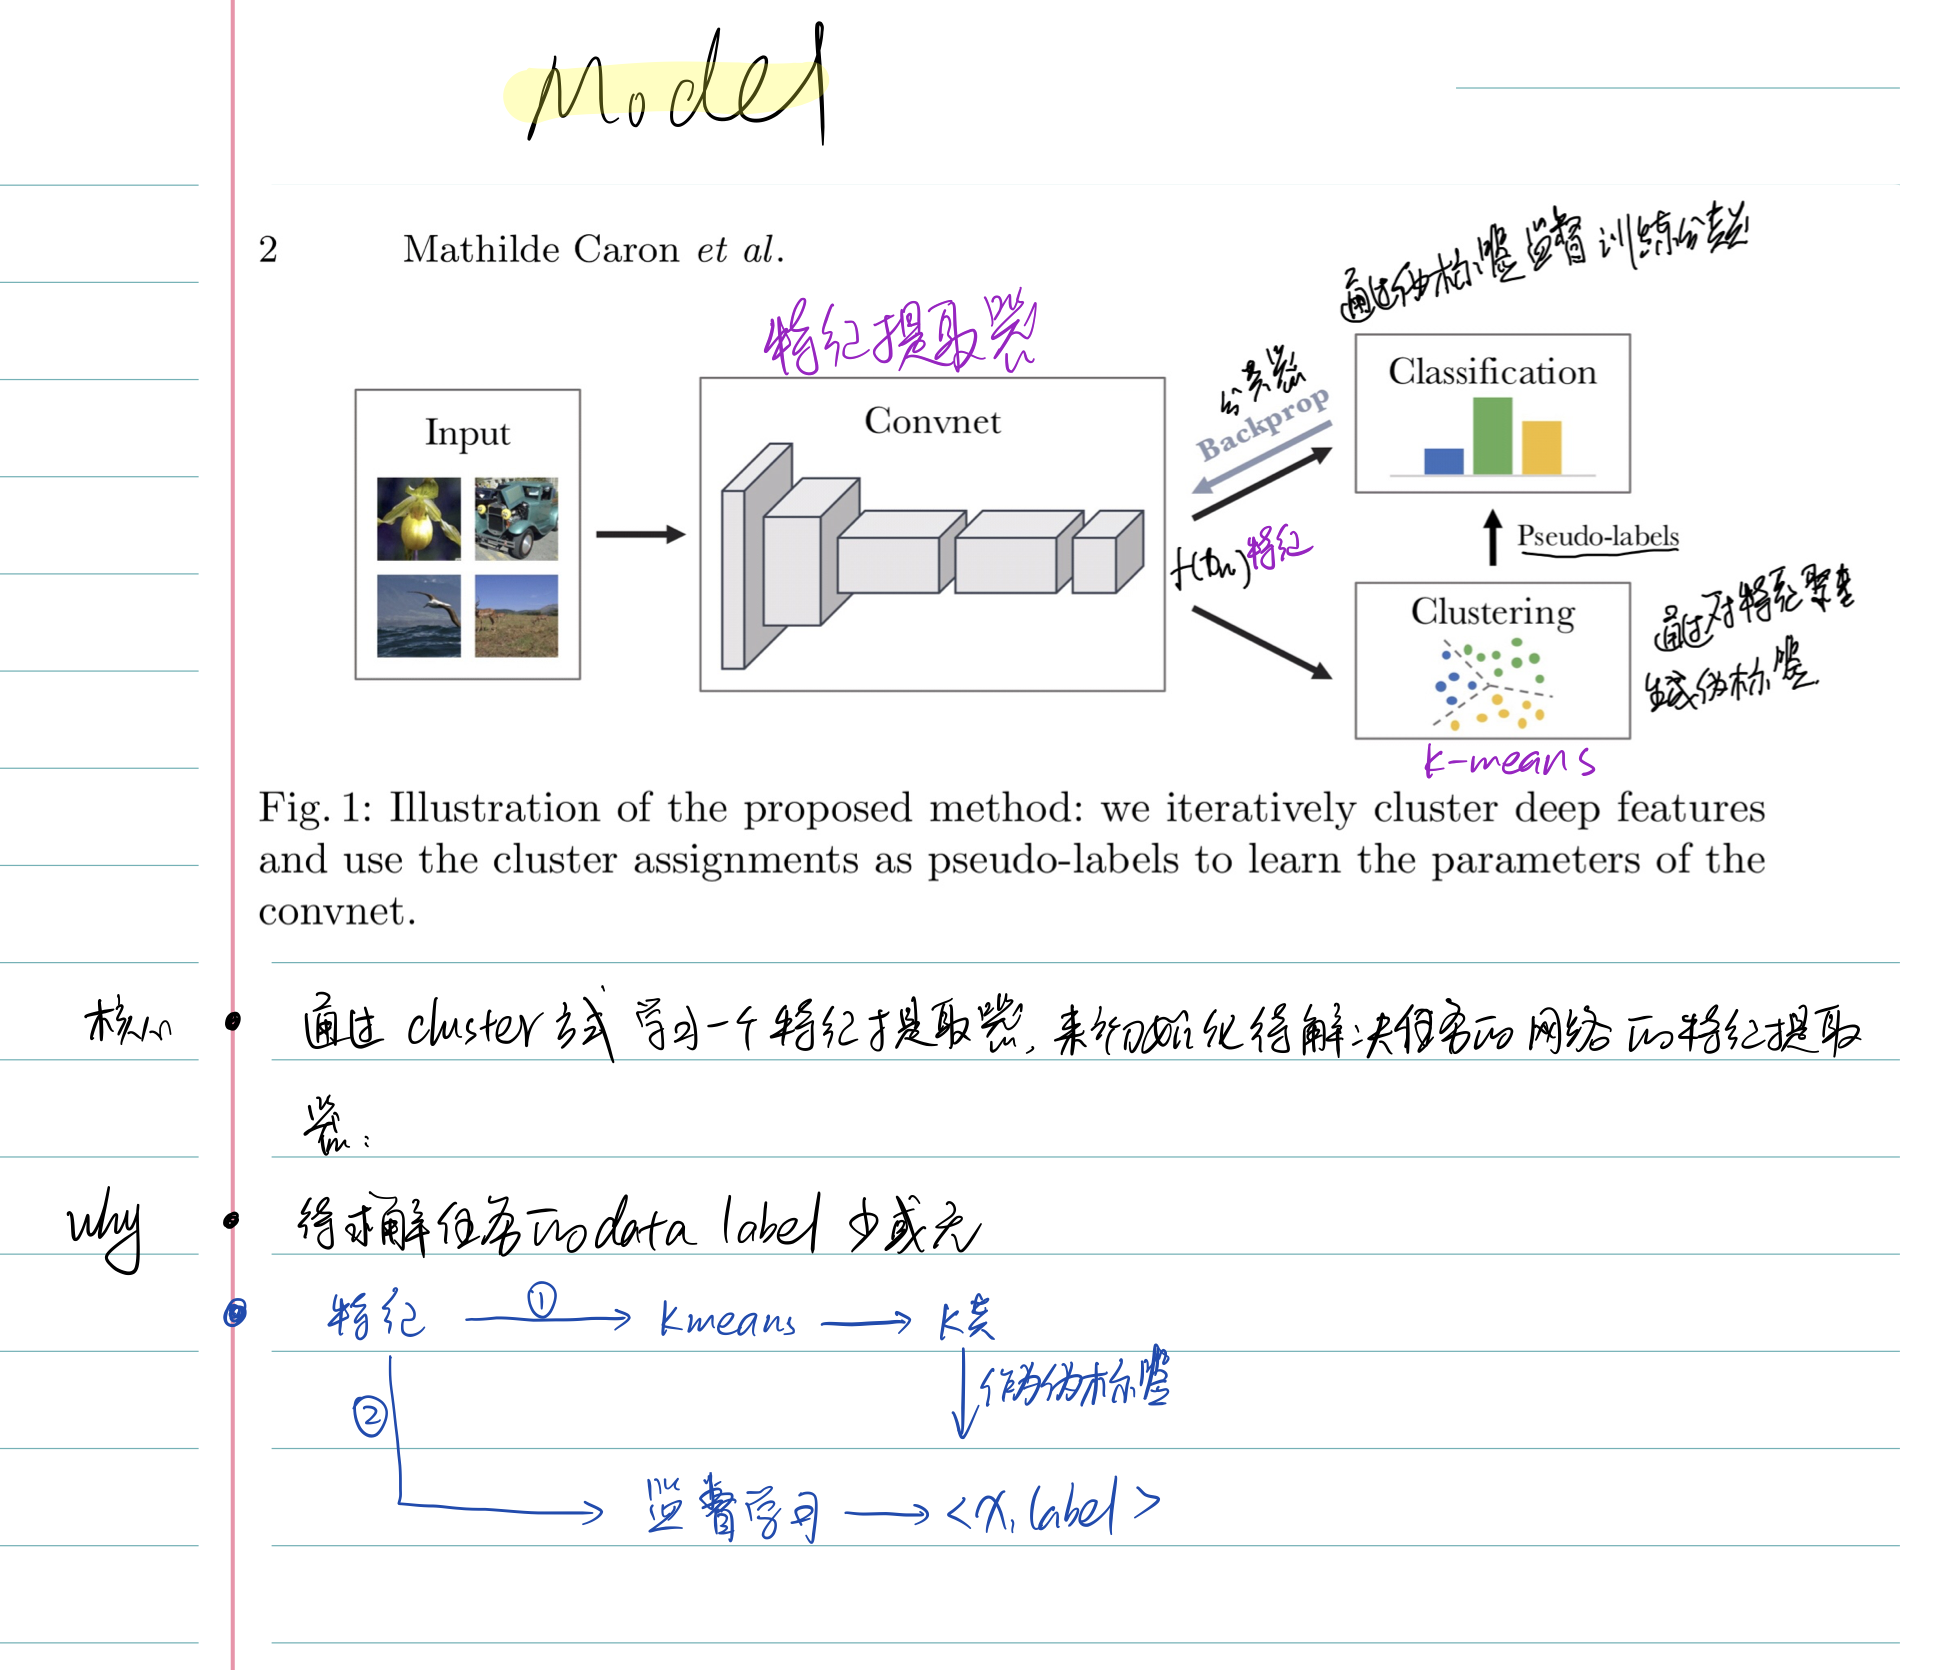 Model
2 Mathilde Caron et al.
通过伪标签监督训练分类
特征提取器
分类器
Classification
Input
Convnet
Backprop
f(θ) 特征
Pseudo-labels
Clustering
通过对特征聚类
生成伪标签
k-means
Fig. 1: Illustration of the proposed method: we iteratively cluster deep features
and use the cluster assignments as pseudo-labels to learn the parameters of the
convnet.
核心 • 通过 cluster 方式 学习一个特征提取器, 来初始化待解决任务的网络的特征提取
器:
why • 待求解任务的 data label 少或无
• 特征 ① → kmeans → k类
作为伪标签
②
监督学习 → <x, label>